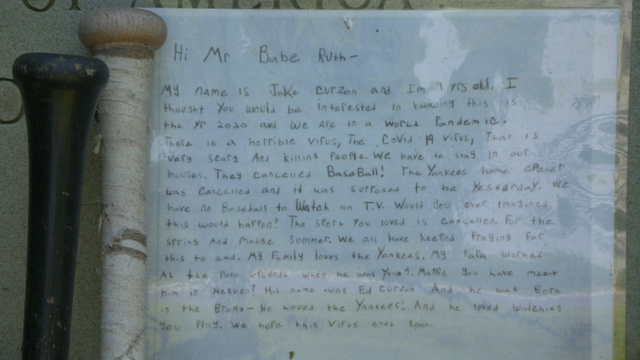 OF AMERICA.
Hi Mr Babe Ruth-
My name is Jake Curzon and I'm 9 yrs old. I
thought You would be interested in knowing this is
the yr 2020 and we are in a World Pandemic.
There is a horrible virus, The Covid 19 virus, That is
very scary And killing People. We have to stay in our
houses. They cancelled BaseBall! The Yankees home opener
was cancelled and it was supposed to be Yesterday. We
have no Baseball to Watch on T.V. Would You ever imagined
this would happen? The sport You loved is cancelled For the
spring And Maybe Summer. We all have keeped Praying for
this to end. My Family loves the Yankees. My Papa worked
At the Polo Grounds when he was Young. Maybe You have meet
him in Heaven? His name was Ed Curzon And he was Born
in the Bronx- He loved the Yankees! And he loved watching
You Play. We hope this virus ends soon.